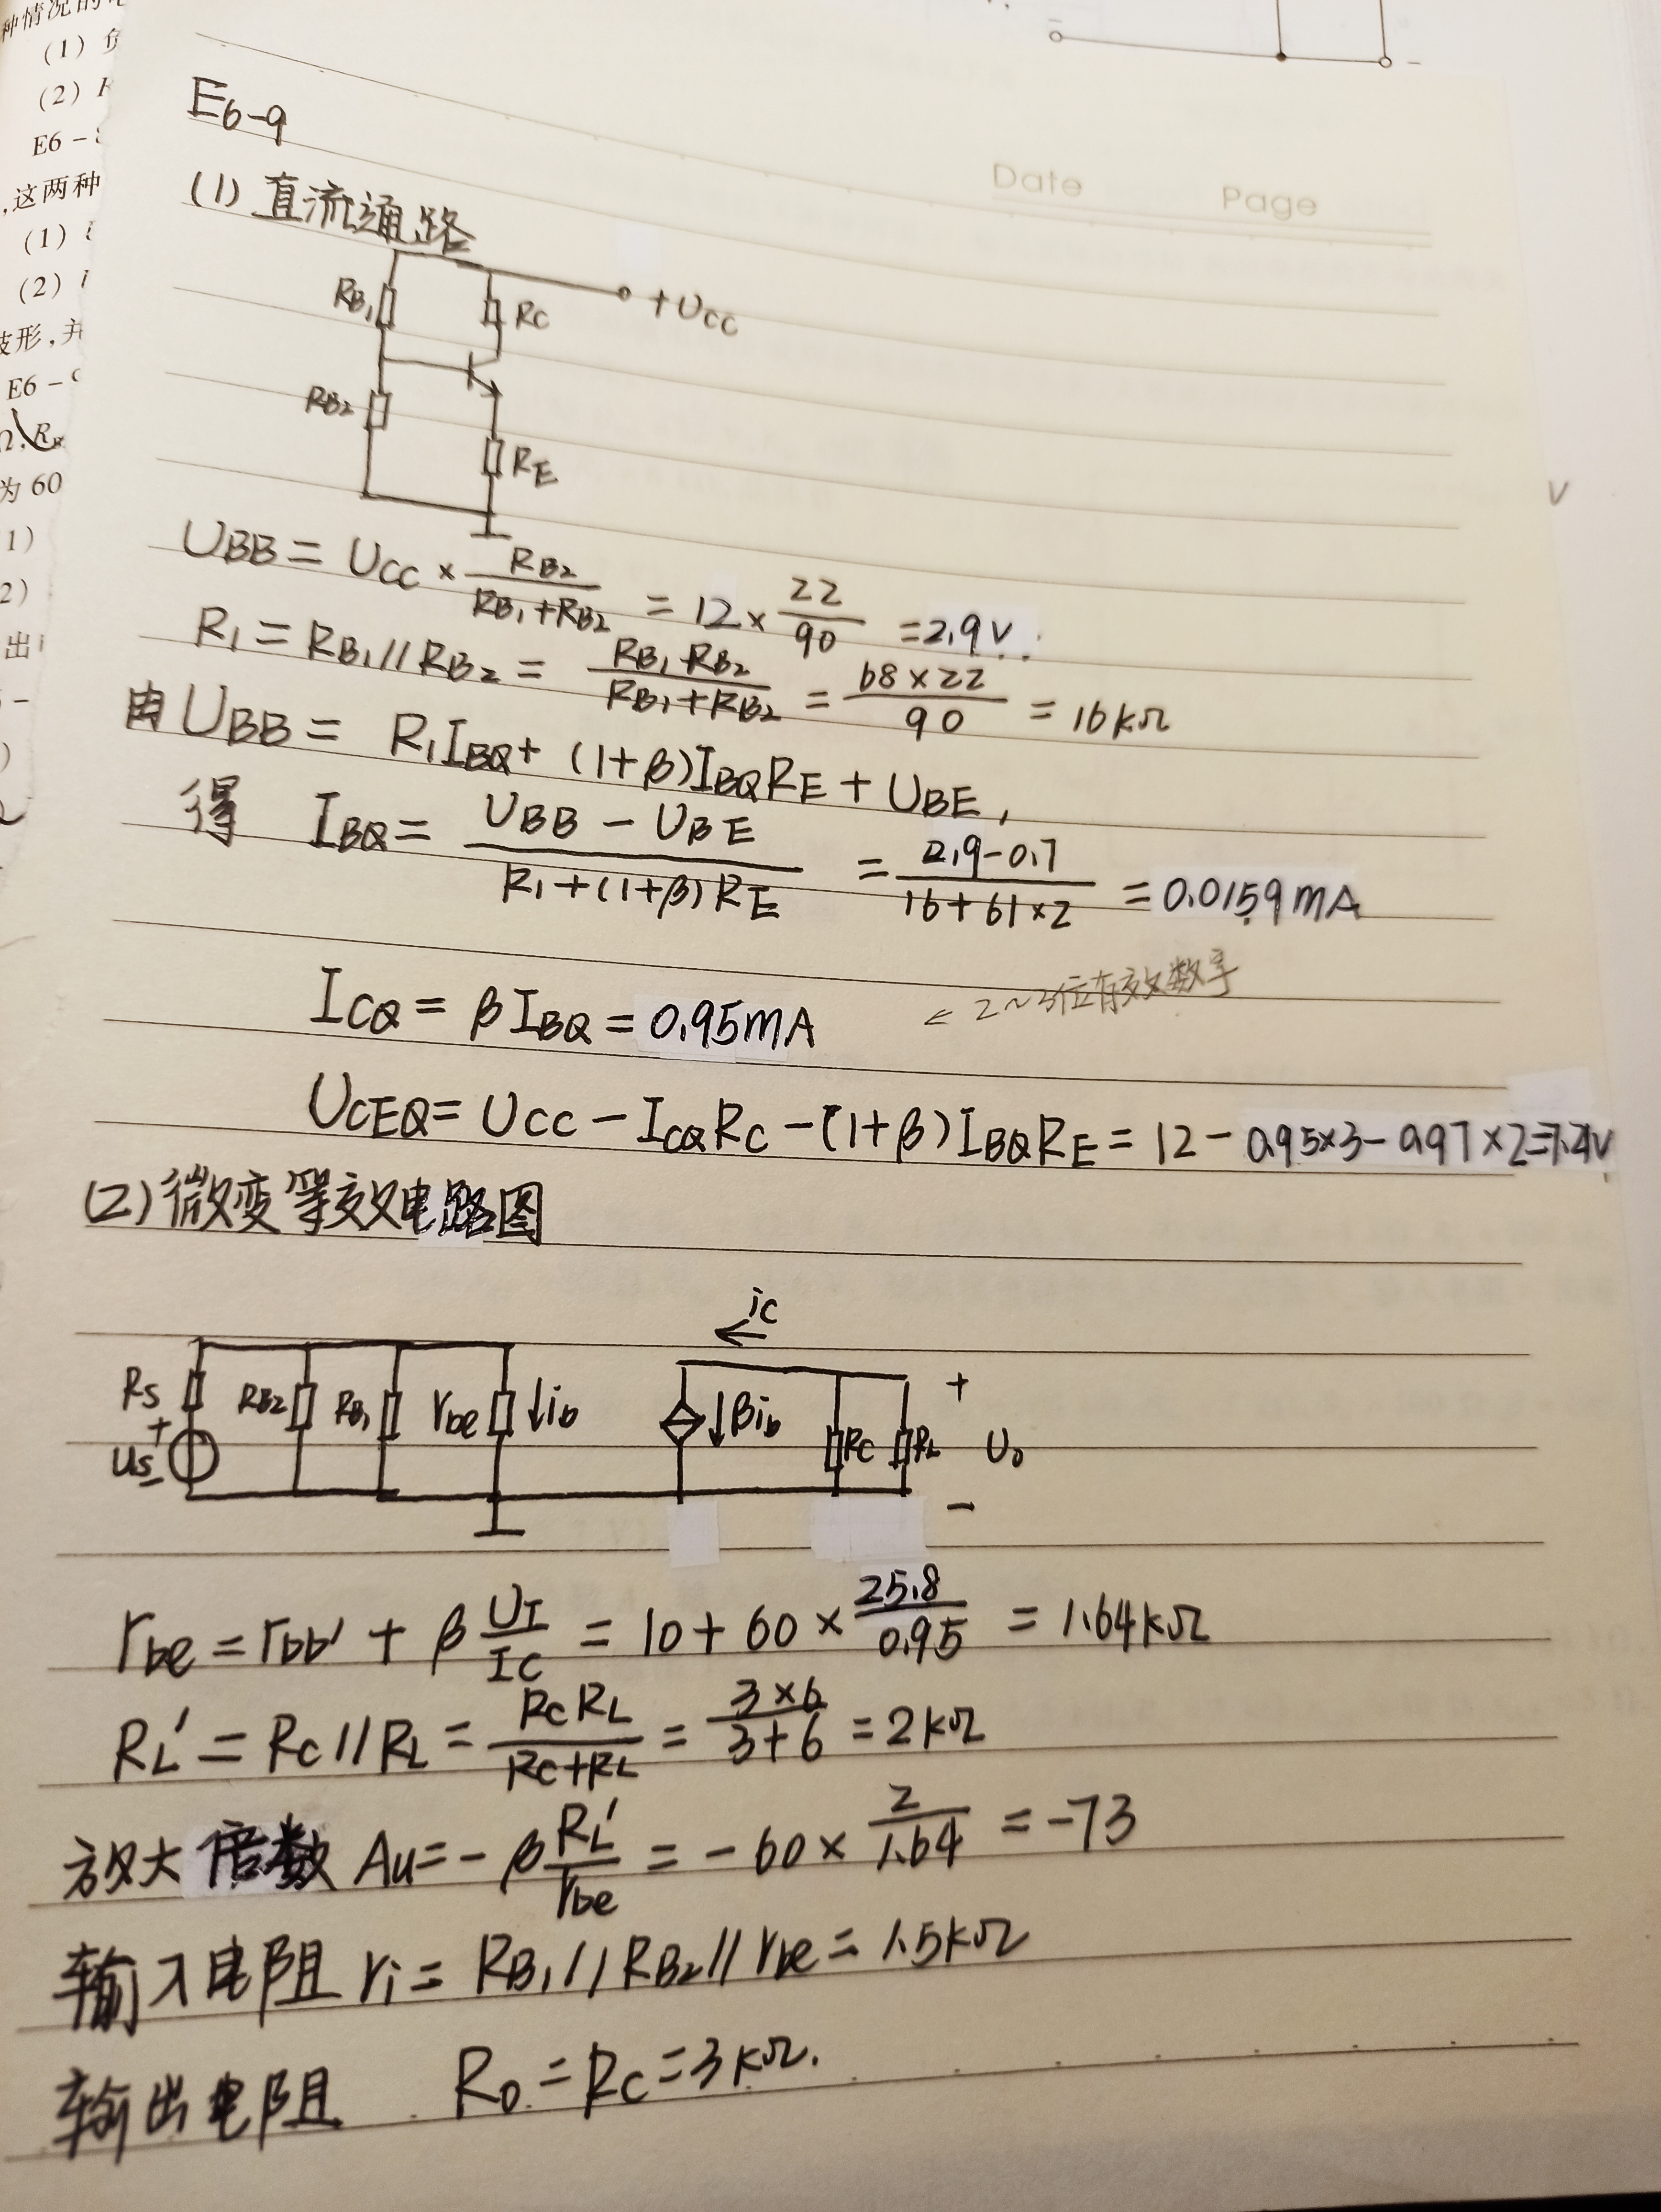 种情况的
(1)
(2)
E6-
,这两种
(1)
(2)
波形,并
E6-
为60
1)
2)
Date Page
E6-9
(1) 直流通路
RB1
RC
+UCC
RB2
RE
V
UBB = UCC × RB2/(RB1+RB2) = 12 × 22/90 = 2.9V.
R1 = RB1//RB2 = RB1·RB2/(RB1+RB2) = 68×22/90 = 16kΩ
由 UBB = R1IBQ + (1+β)IBQRE + UBE,
得 IBQ = (UBB - UBE)/(R1+(1+β)RE) = (2.9-0.7)/(16+61×2) = 0.0159mA
ICQ = βIBQ = 0.95mA ← 2~3位有效数字
UCEQ = UCC - ICQRC - (1+β)IBQRE = 12 - 0.95×3 - 0.97×2=7.21V
(2) 微变等效电路图
ic
RS RB2 RB1 rbe ↓ib ↓βib RC RL + Uo -
+ us -
rbe = rbb' + β UT/IC = 10 + 60 × 25.8/0.95 = 1.64kΩ
RL' = RC//RL = RCRL/(RC+RL) = 3×6/(3+6) = 2kΩ
放大倍数 Au = -β RL'/rbe = -60 × 2/1.64 = -73
输入电阻 ri = RB1//RB2//rbe = 1.5kΩ
输出电阻 Ro = RC = 3kΩ.